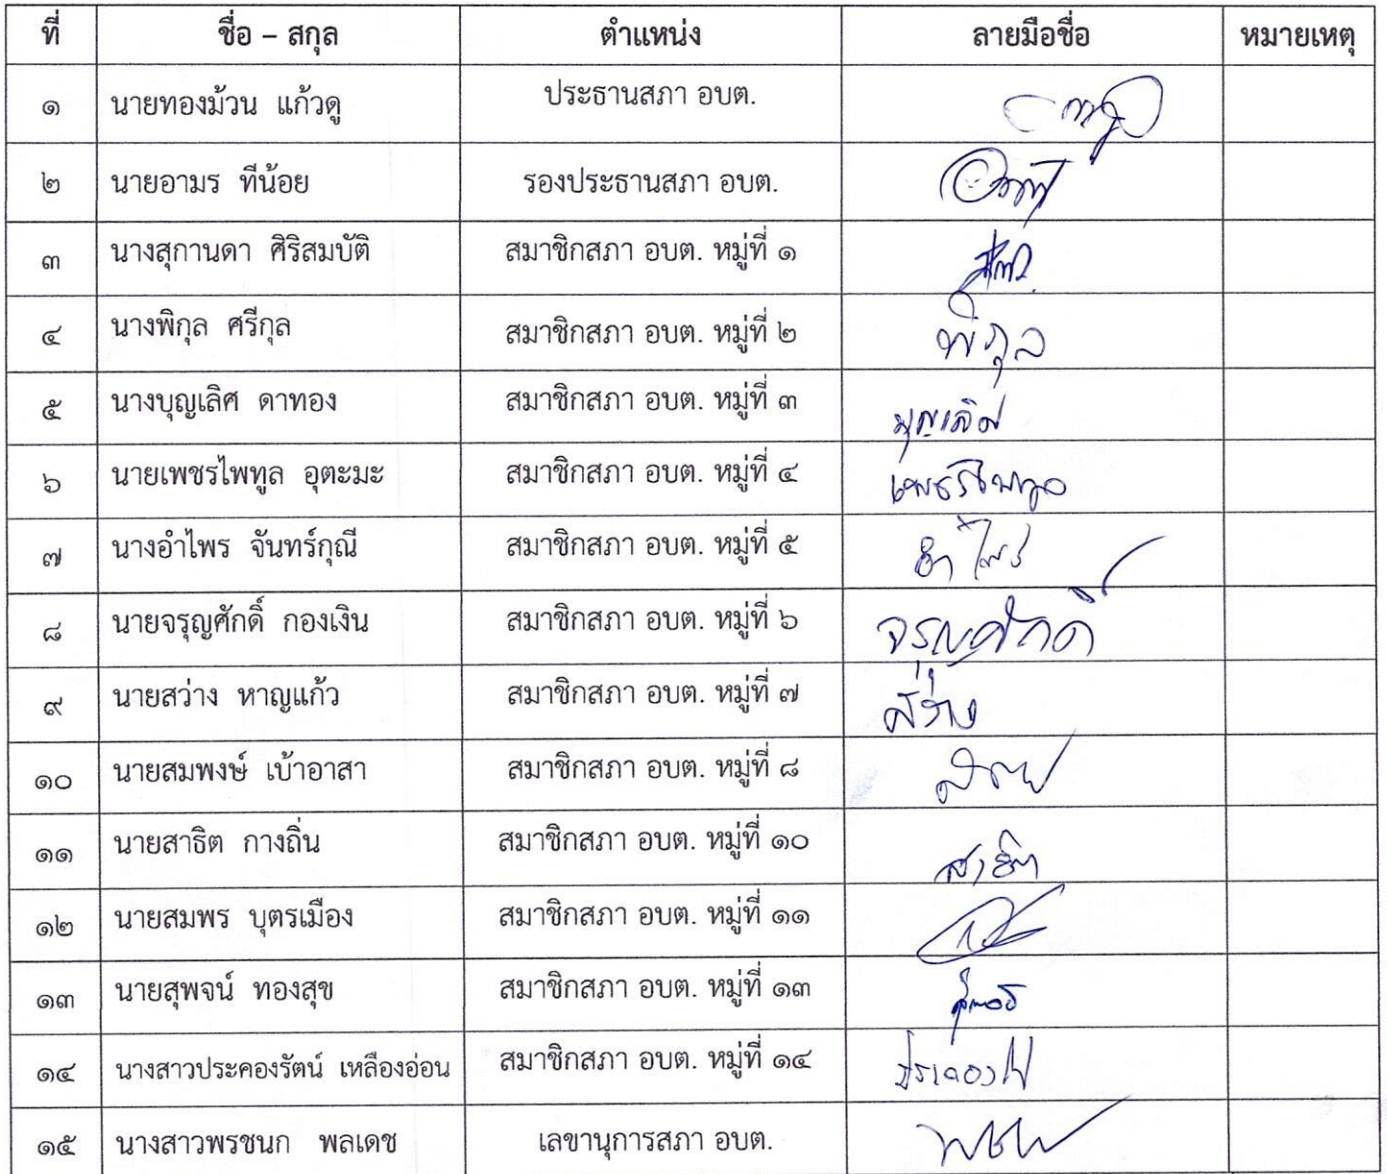 ที่ ชื่อ – สกุล ตำแหน่ง ลายมือชื่อ หมายเหตุ
๑ นายทองม้วน แก้วดู ประธานสภา อบต.
๒ นายอามร ทีน้อย รองประธานสภา อบต.
๓ นางสุกานดา ศิริสมบัติ สมาชิกสภา อบต. หมู่ที่ ๑
๔ นางพิกุล ศรีกุล สมาชิกสภา อบต. หมู่ที่ ๒ พิกุล
๕ นางบุญเลิศ ดาทอง สมาชิกสภา อบต. หมู่ที่ ๓ บุญเลิศ
๖ นายเพชรไพทูล อุตะมะ สมาชิกสภา อบต. หมู่ที่ ๔ เพชรไพทูล
๗ นางอำไพร จันทร์กุณี สมาชิกสภา อบต. หมู่ที่ ๕ อำไพร
๘ นายจรุญศักดิ์ กองเงิน สมาชิกสภา อบต. หมู่ที่ ๖ จรุญศักดิ์
๙ นายสว่าง หาญแก้ว สมาชิกสภา อบต. หมู่ที่ ๗ สว่าง
๑๐ นายสมพงษ์ เบ้าอาสา สมาชิกสภา อบต. หมู่ที่ ๘
๑๑ นายสาธิต กางถิ่น สมาชิกสภา อบต. หมู่ที่ ๑๐ สาธิต
๑๒ นายสมพร บุตรเมือง สมาชิกสภา อบต. หมู่ที่ ๑๑
๑๓ นายสุพจน์ ทองสุข สมาชิกสภา อบต. หมู่ที่ ๑๓
๑๔ นางสาวประคองรัตน์ เหลืองอ่อน สมาชิกสภา อบต. หมู่ที่ ๑๔
๑๕ นางสาวพรชนก พลเดช เลขานุการสภา อบต.